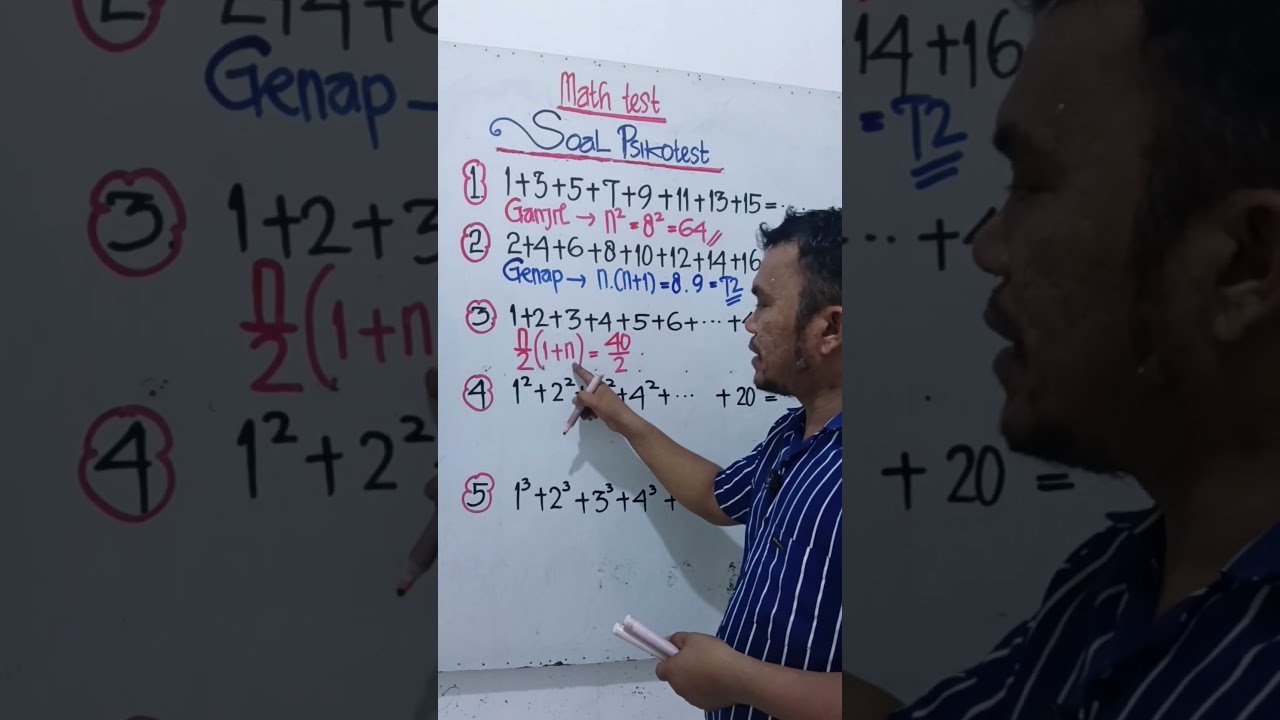 Math test
Soal Psikotest
1 1+3+5+7+9+11+13+15=....
Ganjil → n² = 8² = 64 //
2 2+4+6+8+10+12+14+16
Genap → n.(n+1) = 8.9 = 72
3 1+2+3+4+5+6+...+4
n/2 (1+n) = 40/2 .
4 1²+2²+ ²+4²+... +20=
5 1³+2³+3³+4³+